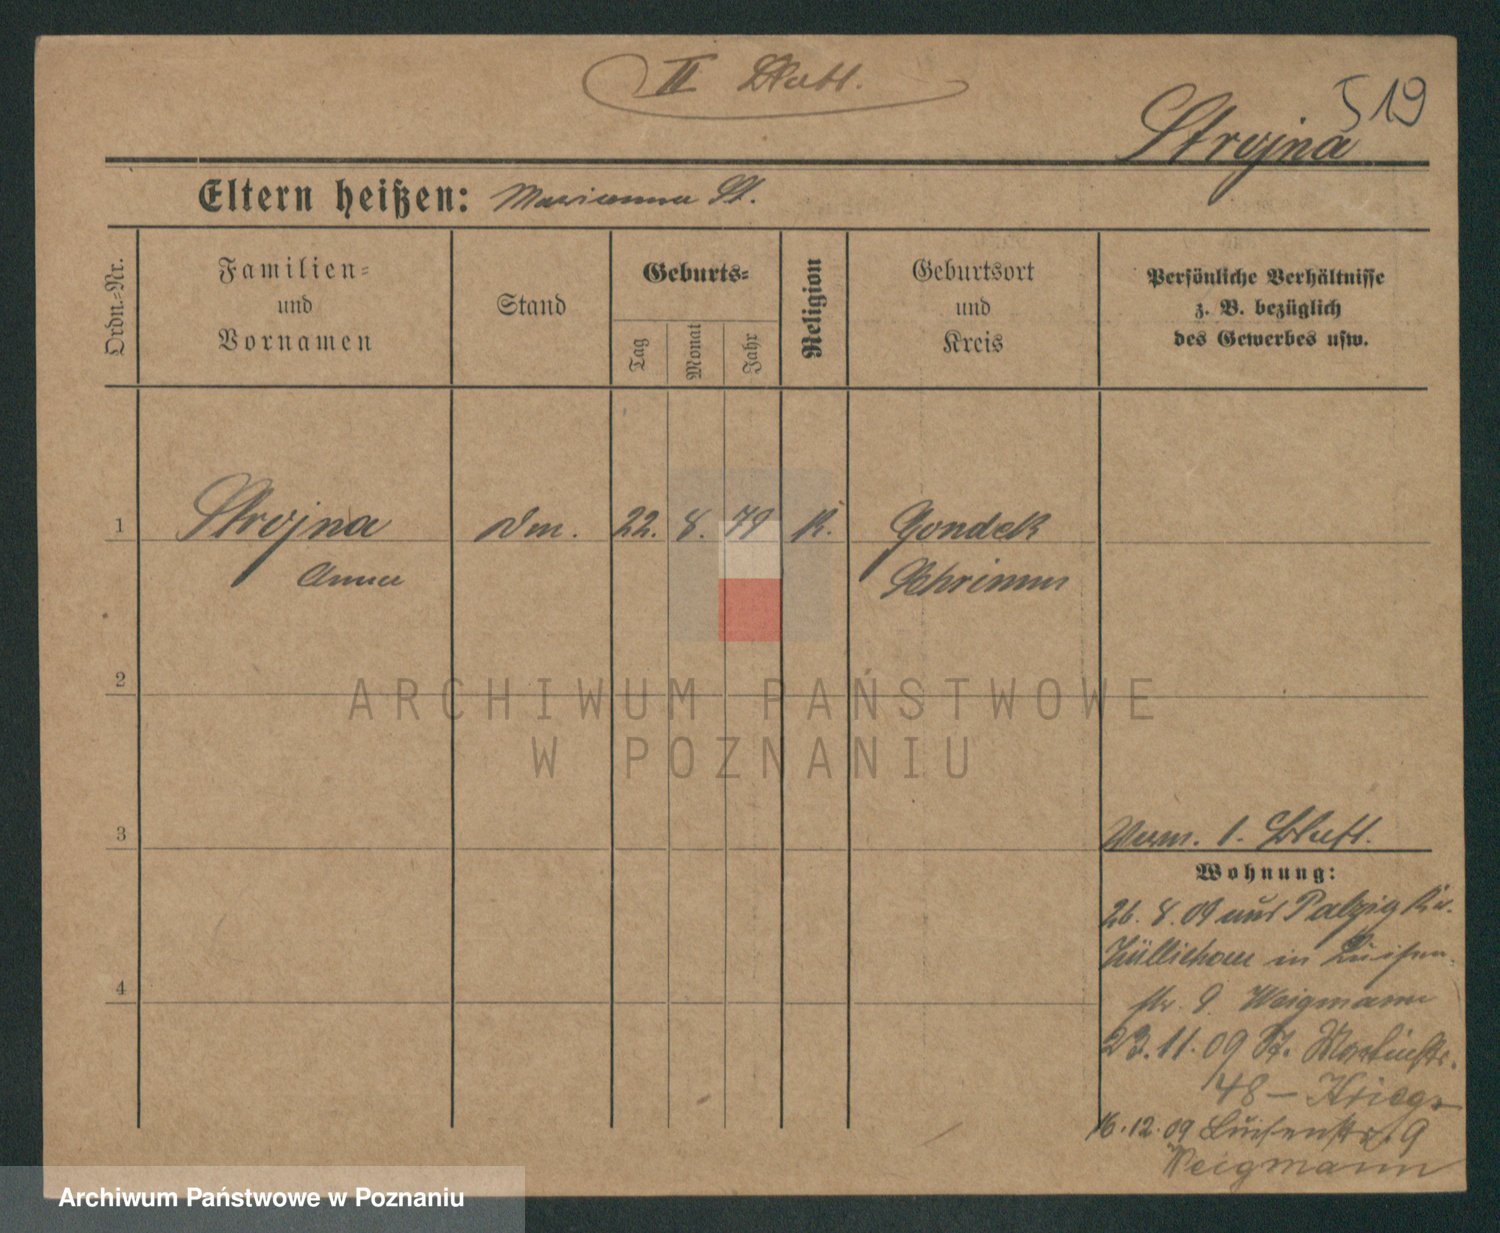 II Blatt.
519
Strojna
Eltern heißen: Marianna St.
Ordn.-Nr.
Familien-
und
Vornamen
Stand
Geburts-
Tag
Monat
Jahr
Religion
Geburtsort
und
Kreis
Persönliche Verhältnisse
z. B. bezüglich
des Gewerbes usw.
1 Strojna 22. 8. 79 K. Gondek
Anna Schrimm
2
3
Verm. 1. Blatt.
Wohnung:
26. 8. 09 aus Palzig Kr.
Züllichau in Luisen
4
str. 9. Weigmann
23. 11. 09 St. Martinstr.
48 – Krieg
16. 12. 09 Luisenstr. 9
Weigmann
ARCHIWUM PAŃSTWOWE
W POZNANIU
Archiwum Państwowe w Poznaniu